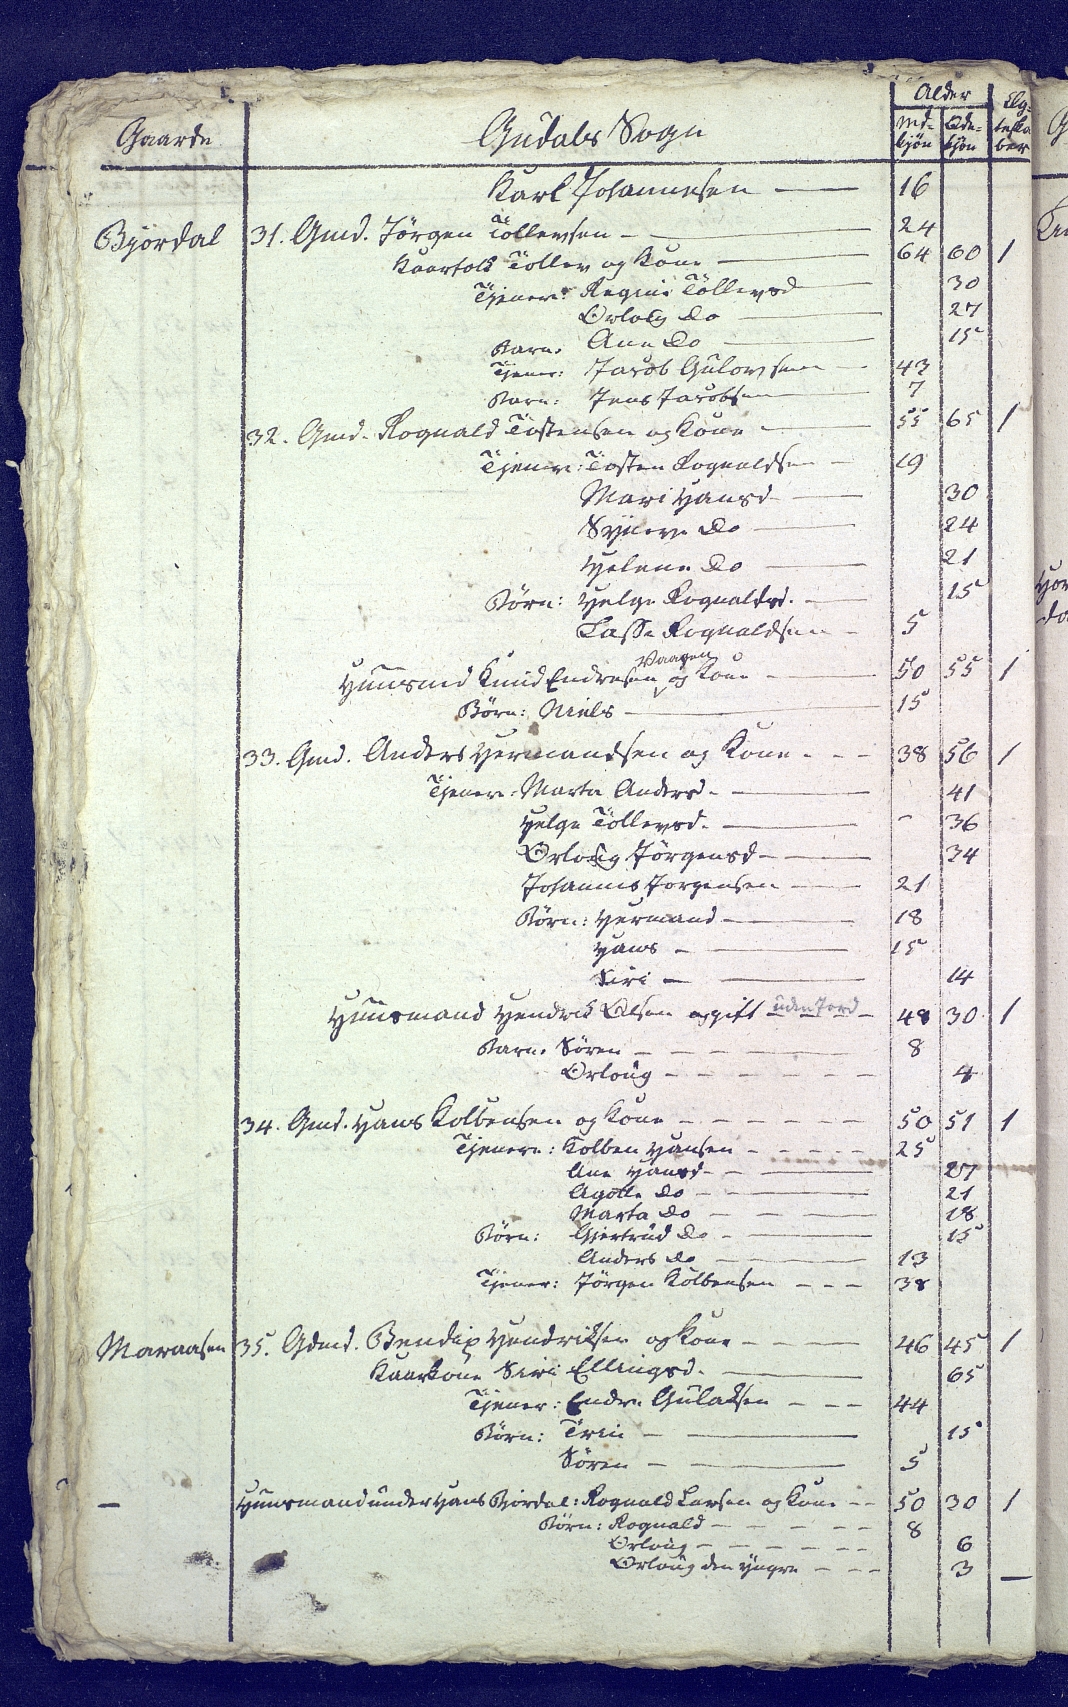 Gaarde Gudals Sogn Alder Mdkjön Qdekjön Ægteskaber
Karl Johannesen — 16
Björdal 31. Gmd. Jörgen Töllevsen — 24
Kaarfolk Töllev og Kone — 64 60 1
Tjenere: Regine Töllevsd 30
Orloug Do — 27
Barn: Ane Do — 15
Tjener: Jacob Gulovsen — 43
Barn: Jens Jacobsen — 7
32. Gmd. Rognald Tostensen og Kone — 55 65 1
Tjener: Tosten Rognaldsen — 19
Mari Hansd — 30
Syneve Do — 24
Helene Do — 21
Börn: Helge Rognaldsd. — 15
Lasse Rognaldsen — 5
Vaagen
Huusmd Knud Endresen og Kone — 50 55 1
Börn: Niels — 15
33. Gmd. Anders Hermandsen og Kone - - - 38 56 1
Tjener: Marta Andersd. — 41
Helge Töllevsd. — - 36
Orloug Jörgensd — 34
Johannes Jorgensen — 21
Börn: Hermand — 18
Hans — 15
Siri — 14
Huusmand Hendrick Olsen og gift uden Jord — 48 30 1
Barn: Sören — 8
Orloug — 4
34. Gmd. Hans Kolbensen og Kone — 50 51 1
Tjenere: Kolben Hansen — 25
Ane Hansd — 27
Agotte Do — 21
Marta Do — 18
Börn: Giertrud Do — 15
Anders Do — 13
Tjener: Jörgen Kolbensen — 38
Maraasen 35. Gdmd. Bendix Hendriksen og Kone — 46 45 1
Kaarkone Siri Ellingsd. — 65
Tjener: Endre Gulaksen — 44
Börn: Trin — 15
Sören — 5
— Huusmand under Hans Björdal: Rognald Larsen og Kone — 50 30 1
Börn: Rognald — 8
Orloug — 6
Orloug den Yngre — 3